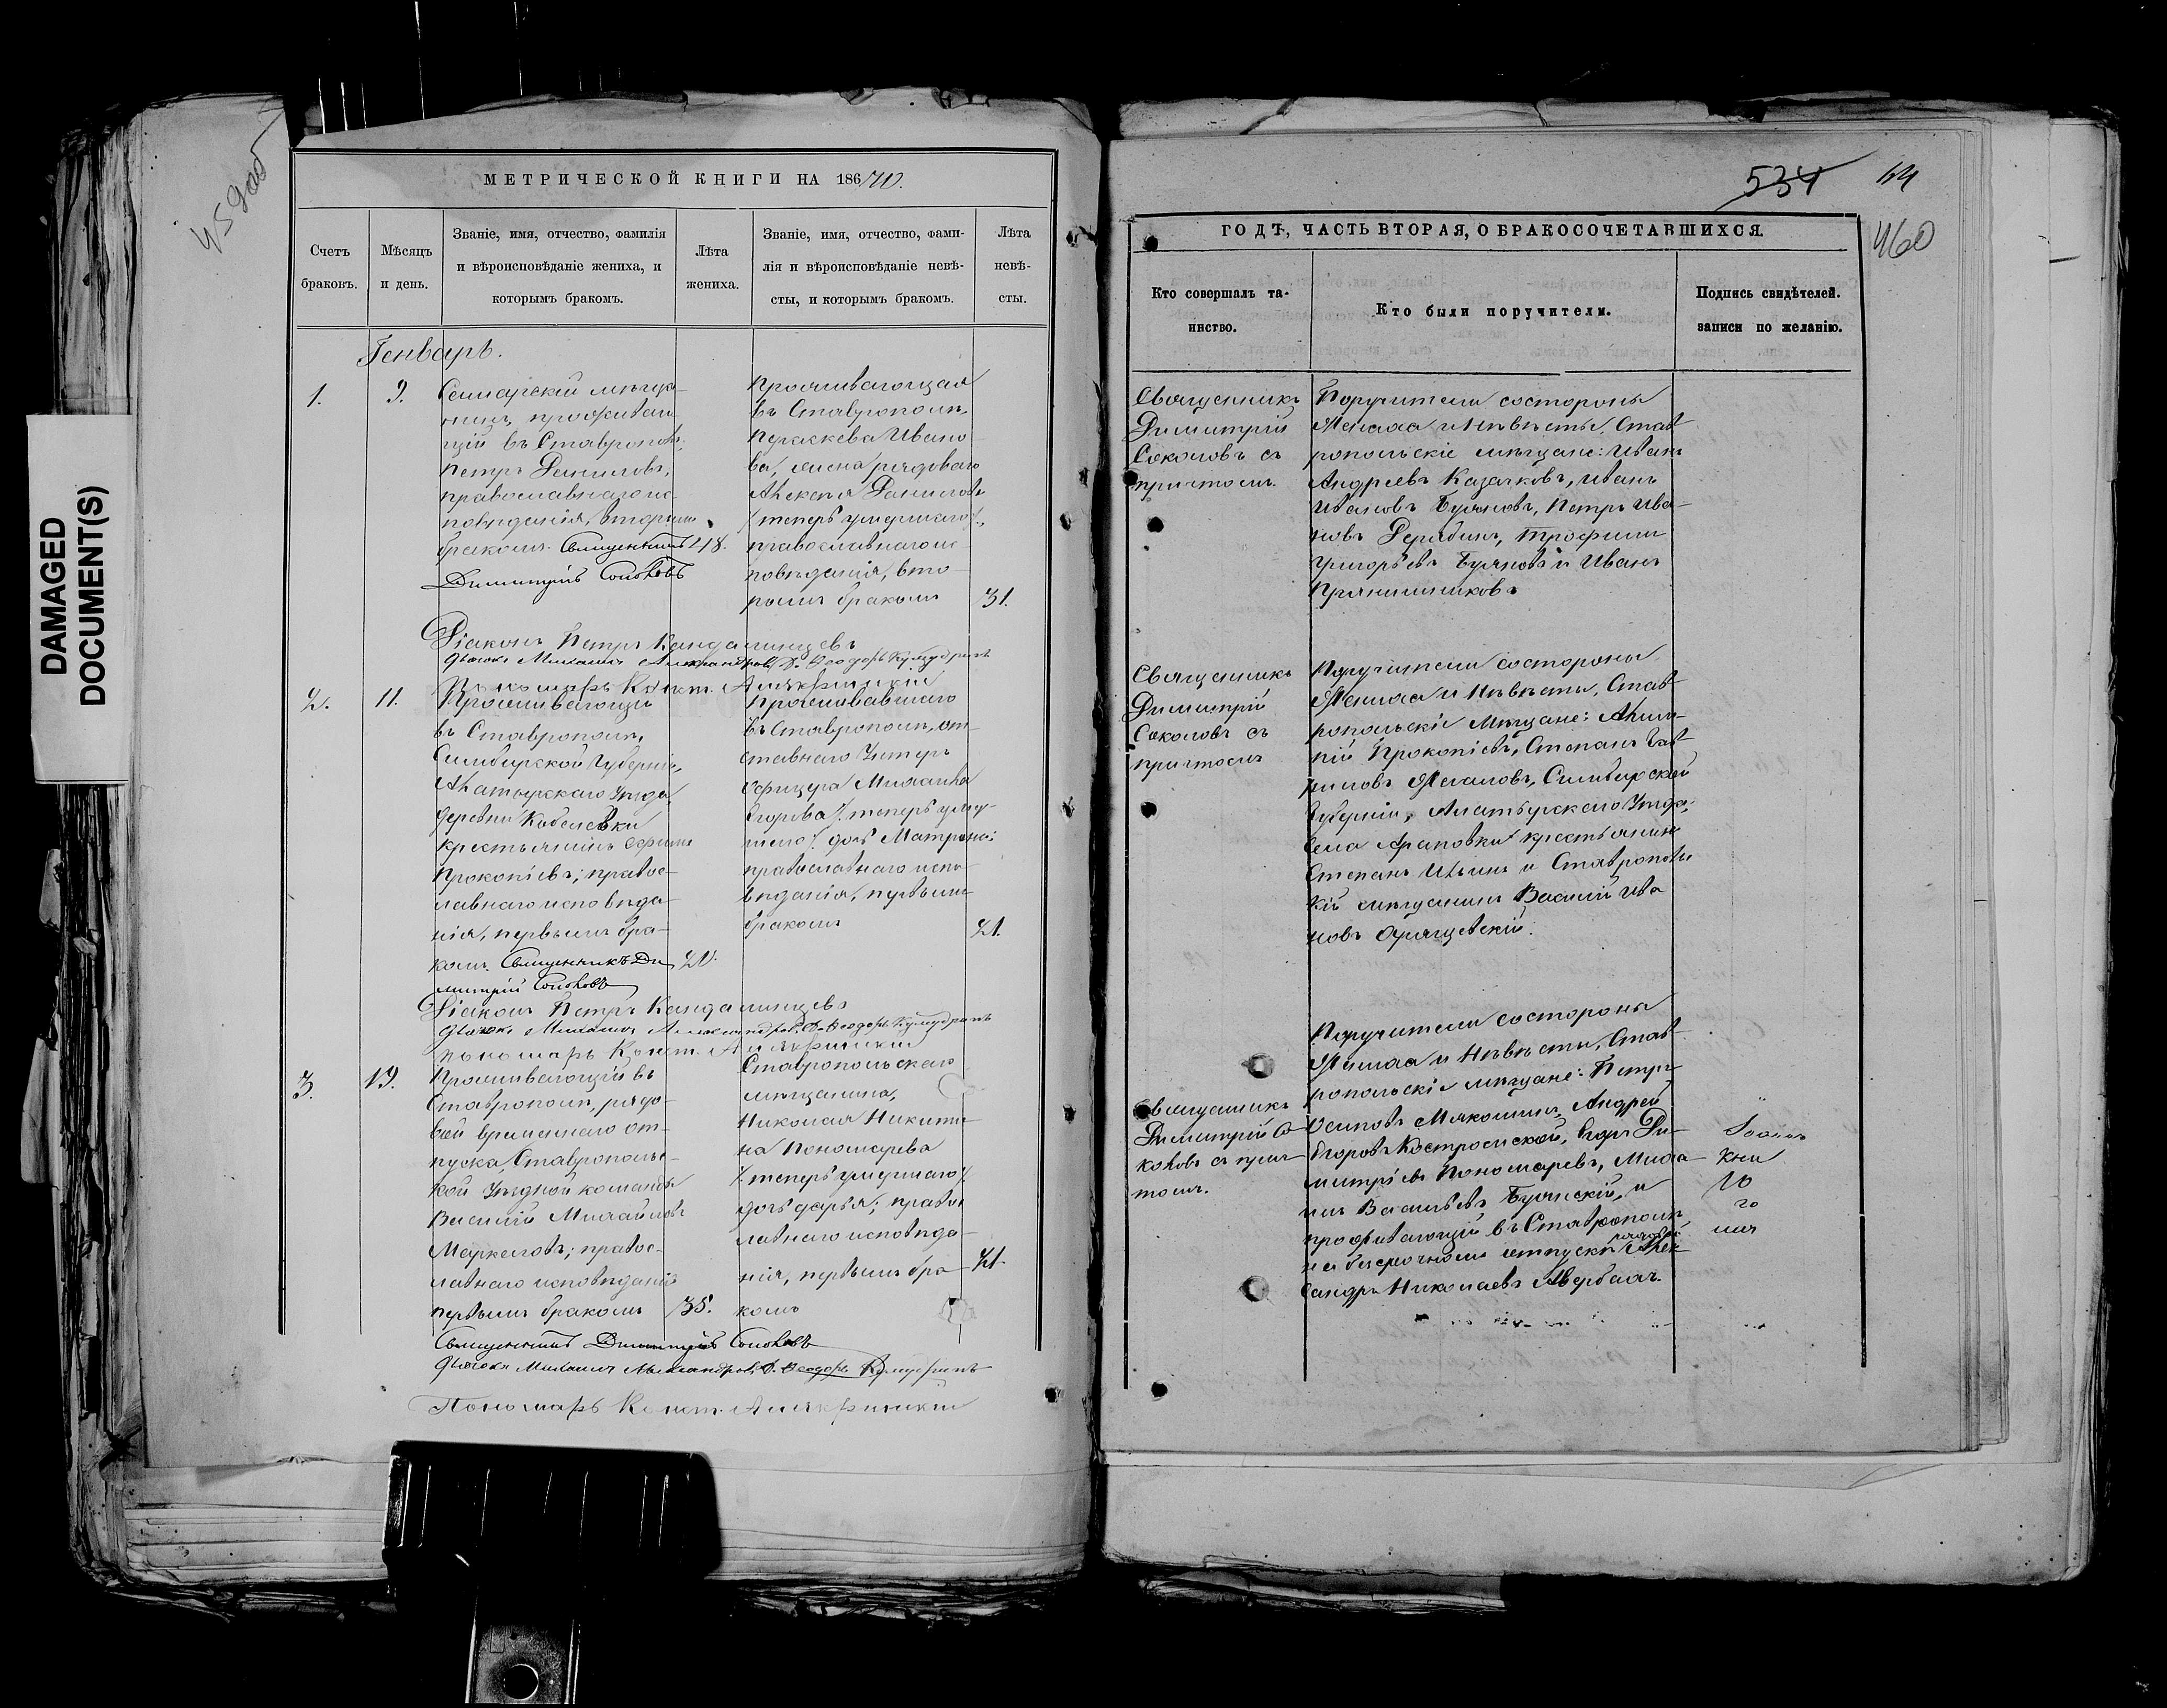 DAMAGED
DOCUMENT(S)
МЕТРИЧЕСКОЙ КНИГИ НА 18670.
Счетъ
браковъ.
Мѣсяцъ
и день.
Званіе, имя, отчество, фамилія
и вѣроисповѣданіе жениха, и
которымъ бракомъ.
Лѣта
жениха.
Званіе, имя, отчество, фами-
лія и вѣроисповѣданіе невѣ-
сты, и которымъ бракомъ.
Лѣта
невѣ-
сты.
Генварь.
1.
9.
Самарскій мѣща-
нинъ, проживаю-
щій въ Ставрополѣ,
Петръ Даниловъ,
православнаго ис-
повѣданія, вторымъ
бракомъ. Священникъ
Димитрій Соколовъ
48.
Проживающая
въ Ставрополѣ,
Параскева Ивано-
ва, жена рядоваго
Алексѣя Данилова
/теперь умершаго/,
православнаго ис-
повѣданія, вто-
рымъ бракомъ
31.
Діаконъ Петръ Кандалинцевъ
Дьячокъ Михаилъ Александровъ, Д. Ѳеодоръ
Пономарь Конст. Алякринскій
2.
11.
Проживающій
въ Ставрополѣ,
Симбирской Губерніи,
Алатырскаго Уѣзда,
деревни Кобелевки
крестьянинъ Ефимъ
Прокопіевъ; правос-
лавнаго исповѣда-
нія, первымъ бра-
комъ. Священникъ Ди-
митрій Соколовъ
20.
Проживавшаго
въ Ставрополѣ, от-
ставнаго Унтеръ
Офицера Михаила
Егорова /теперь умер-
шаго/ дочь Матрона;
православнаго испо-
вѣданія, первымъ
бракомъ
21.
Діаконъ Петръ Кандалинцевъ
Дьячокъ Михаилъ Александровъ, Д. Ѳеодоръ
Пономарь Конст. Алякринскій
3.
19.
Проживающій въ
Ставрополѣ, рядо-
вой временнаго от-
пуска, Ставрополь-
кой Уѣздной команды
Василій Михайловъ
Маркеловъ; правос-
лавнаго исповѣданія
первымъ бракомъ
35.
Ставропольскаго
мѣщанина,
Николая Никити-
на Пономарева
/теперь умершаго/
дочь Дарья; правос-
лавнаго исповѣда-
нія, первымъ бра-
комъ
21.
Священникъ Димитрій Соколовъ
Дьячокъ Михаилъ Александровъ, Д. Ѳеодоръ
Пономарь Конст. Алякринскій
534
460
ГОДЪ, ЧАСТЬ ВТОРАЯ, О БРАКОСОЧЕТАВШИХСЯ.
Кто совершалъ та-
инство.
Кто были поручители.
Подпись свидѣтелей.
записи по желанію.
Священникъ
Димитрій
Соколовъ съ
причтомъ.
Поручители состороны
Жениха и Невѣсты, Став-
ропольскіе мѣщане: Иванъ
Андреевъ Казачковъ, Иванъ
Ивановъ Буяновъ, Петръ Ива-
новъ Дерябинъ, Трофимъ
Григорьевъ Буяновъ и Иванъ
Прянишниковъ
Священникъ
Димитрій
Соколовъ съ
причтомъ
Поручители состороны
Жениха и Невѣсты, Став-
ропольскіе Мѣщане:
Прокопіевъ, Степанъ Гав-
риловъ Симбирской
Губерніи, Алатырскаго Уѣзда,
села крестьянинъ
Степанъ Ильинъ и Ставрополь-
кій мѣщанинъ Василій Ива-
новъ
Священникъ
Димитрій Со-
коловъ съ прич-
томъ.
Поручители состороны
Жениха и Невѣсты, Став-
ропольскіе мѣщане: Петръ
Осиповъ Андрей
Егоровъ Костромской, Егоръ Ди-
митріевъ Пономаревъ, Миха-
илъ Васильевъ и
проживающій въ Ставрополѣ
на безсрочномъ отпуску рядовой Алек-
сандръ Николаевъ Авербахъ.